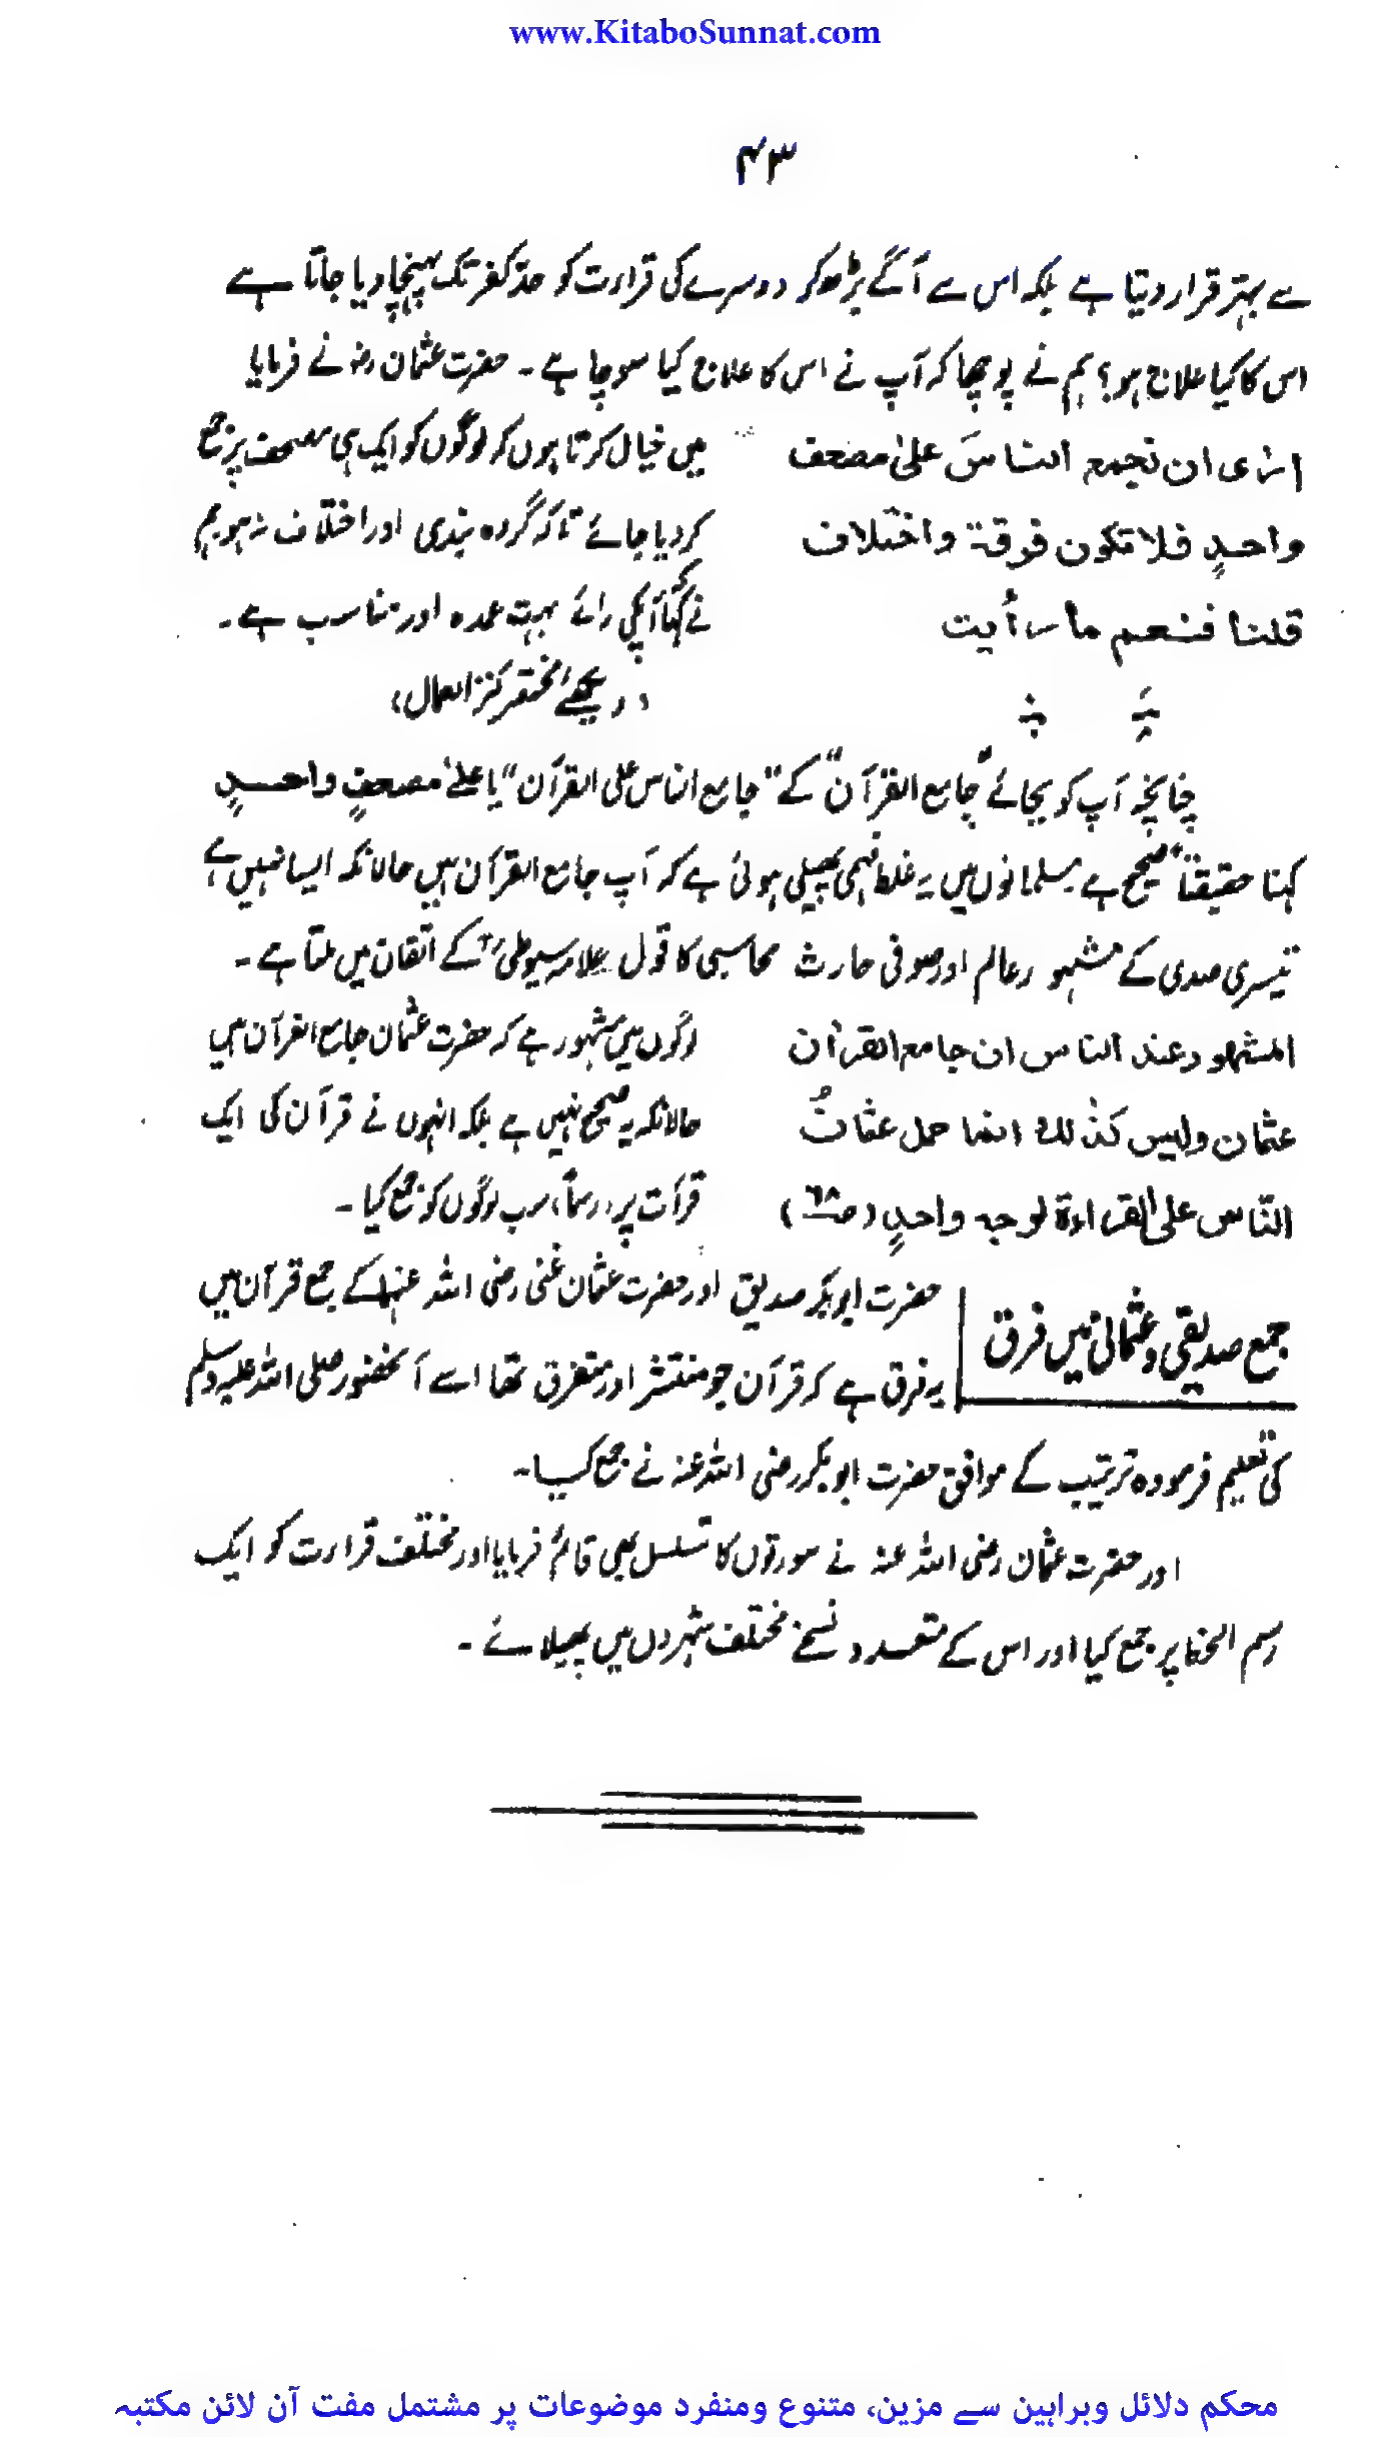 www.KitaboSunnat.com
۴۳
سے بہتر قرار دیتا ہے بلکہ اس سے آگے بڑھ کر دوسرے کی قراءت کو حدِّ کفر تک پہنچا دیا جاتا ہے
اس کا کیا علاج ہو؟ ہم نے پوچھا کہ آپ نے اس کا علاج کیا سوچا ہے۔ حضرت عثمان رضؓ نے فرمایا
ارٰی ان نجمع الناسَ علیٰ مصحف
واحدٍ فلا تکون فرقة واختلاف
قلنا فنعم ما رأیت
میں خیال کرتا ہوں کہ لوگوں کو ایک ہی مصحف پر جمع
کر دیا جائے تاکہ گروہ بندی اور اختلاف نہ ہو ہم
نے کہا کہ آپکی رائے بہت عمدہ اور مناسب ہے۔
(دیکھئے مختصر کنز العمال)
چنانچہ آپ کو بجائے "جامع القرآن" کے "جامع الناس علی القرآن" یا علیٰ مصحفٍ واحدٍ
کہنا حقیقتاً صحیح ہے مسلمانوں میں یہ غلط فہمی پھیلی ہوئی ہے کہ آپ جامع القرآن ہیں حالانکہ ایسا نہیں ہے
تیسری صدی کے مشہور عالم اور صوفی حارث محاسبی کا قول علامہ سیوطیؒ کے اتقان میں ملتا ہے۔
المشهور عند الناس ان جامع القرآن
عثمان ولیس کذٰلك انما حمل عثمانُ
النّاس علی القراءة لوجه واحدٍ (ص۶۸)
لوگوں میں مشہور ہے کہ حضرت عثمان جامع القرآن ہیں
حالانکہ یہ صحیح نہیں ہے بلکہ انہوں نے قرآن کی ایک
قرأت پر، رسماً، سب لوگوں کو جمع کیا۔
جمع صدیقی و عثمانی میں فرق
حضرت ابو بکر صدیق اور حضرت عثمان غنی رضی اللہ عنہما کے جمع قرآن میں
یہ فرق ہے کہ قرآن جو منتشر اور متفرق تھا اسے آنحضور صلی اللہ علیہ وسلم
کی تعلیم فرمودہ ترتیب کے موافق حضرت ابو بکر رضی اللہ عنہ نے جمع کیا۔
اور حضرت عثمان رضی اللہ عنہ نے سورتوں کا تسلسل بھی قائم فرمایا اور مختلف قراءت کو ایک
رسم الخط پر جمع کیا اور اس کے متعدد نسخے مختلف شہروں میں پھیلائے۔
محکم دلائل وبراہین سے مزین، متنوع ومنفرد موضوعات پر مشتمل مفت آن لائن مکتبہ